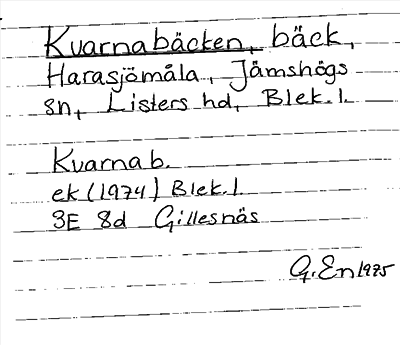 Kvarnabäcken, bäck,
Harasjömåla, Jämshögs
sn, Listers hd, Blek.l.
Kvarnab.
ek (1974) Blek.l.
3E 8d Gillesnäs
G.En 1975